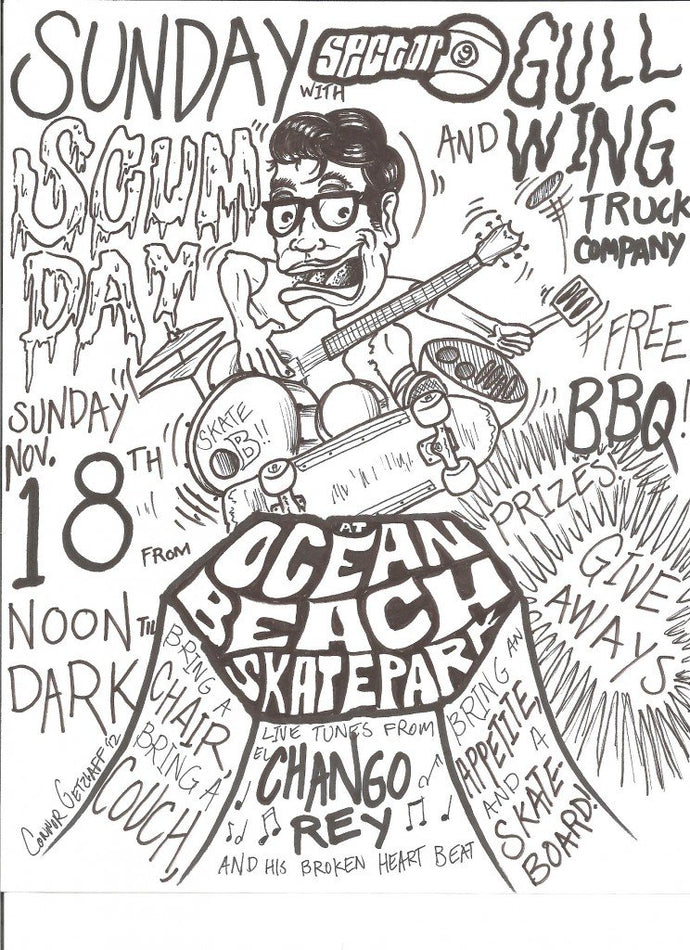 SUNDAY
WITH
SECTOR 9
AND
GULL
WING
TRUCK
COMPANY
SCUM
DAY
SUNDAY
NOV.
18TH
FROM
NOON TIL
DARK
FREE
BBQ!
PRIZES!
GIVE
AWAYS
SKATE
OB!!
AT
OCEAN
BEACH
SKATEPARK
BRING A
CHAIR,
BRING A
COUCH,
LIVE TUNES FROM
EL
CHANGO
REY
AND HIS BROKEN HEART BEAT
BRING AN
APPETITE,
AND A
SKATE
BOARD!
CONNOR GETZLAFF '12